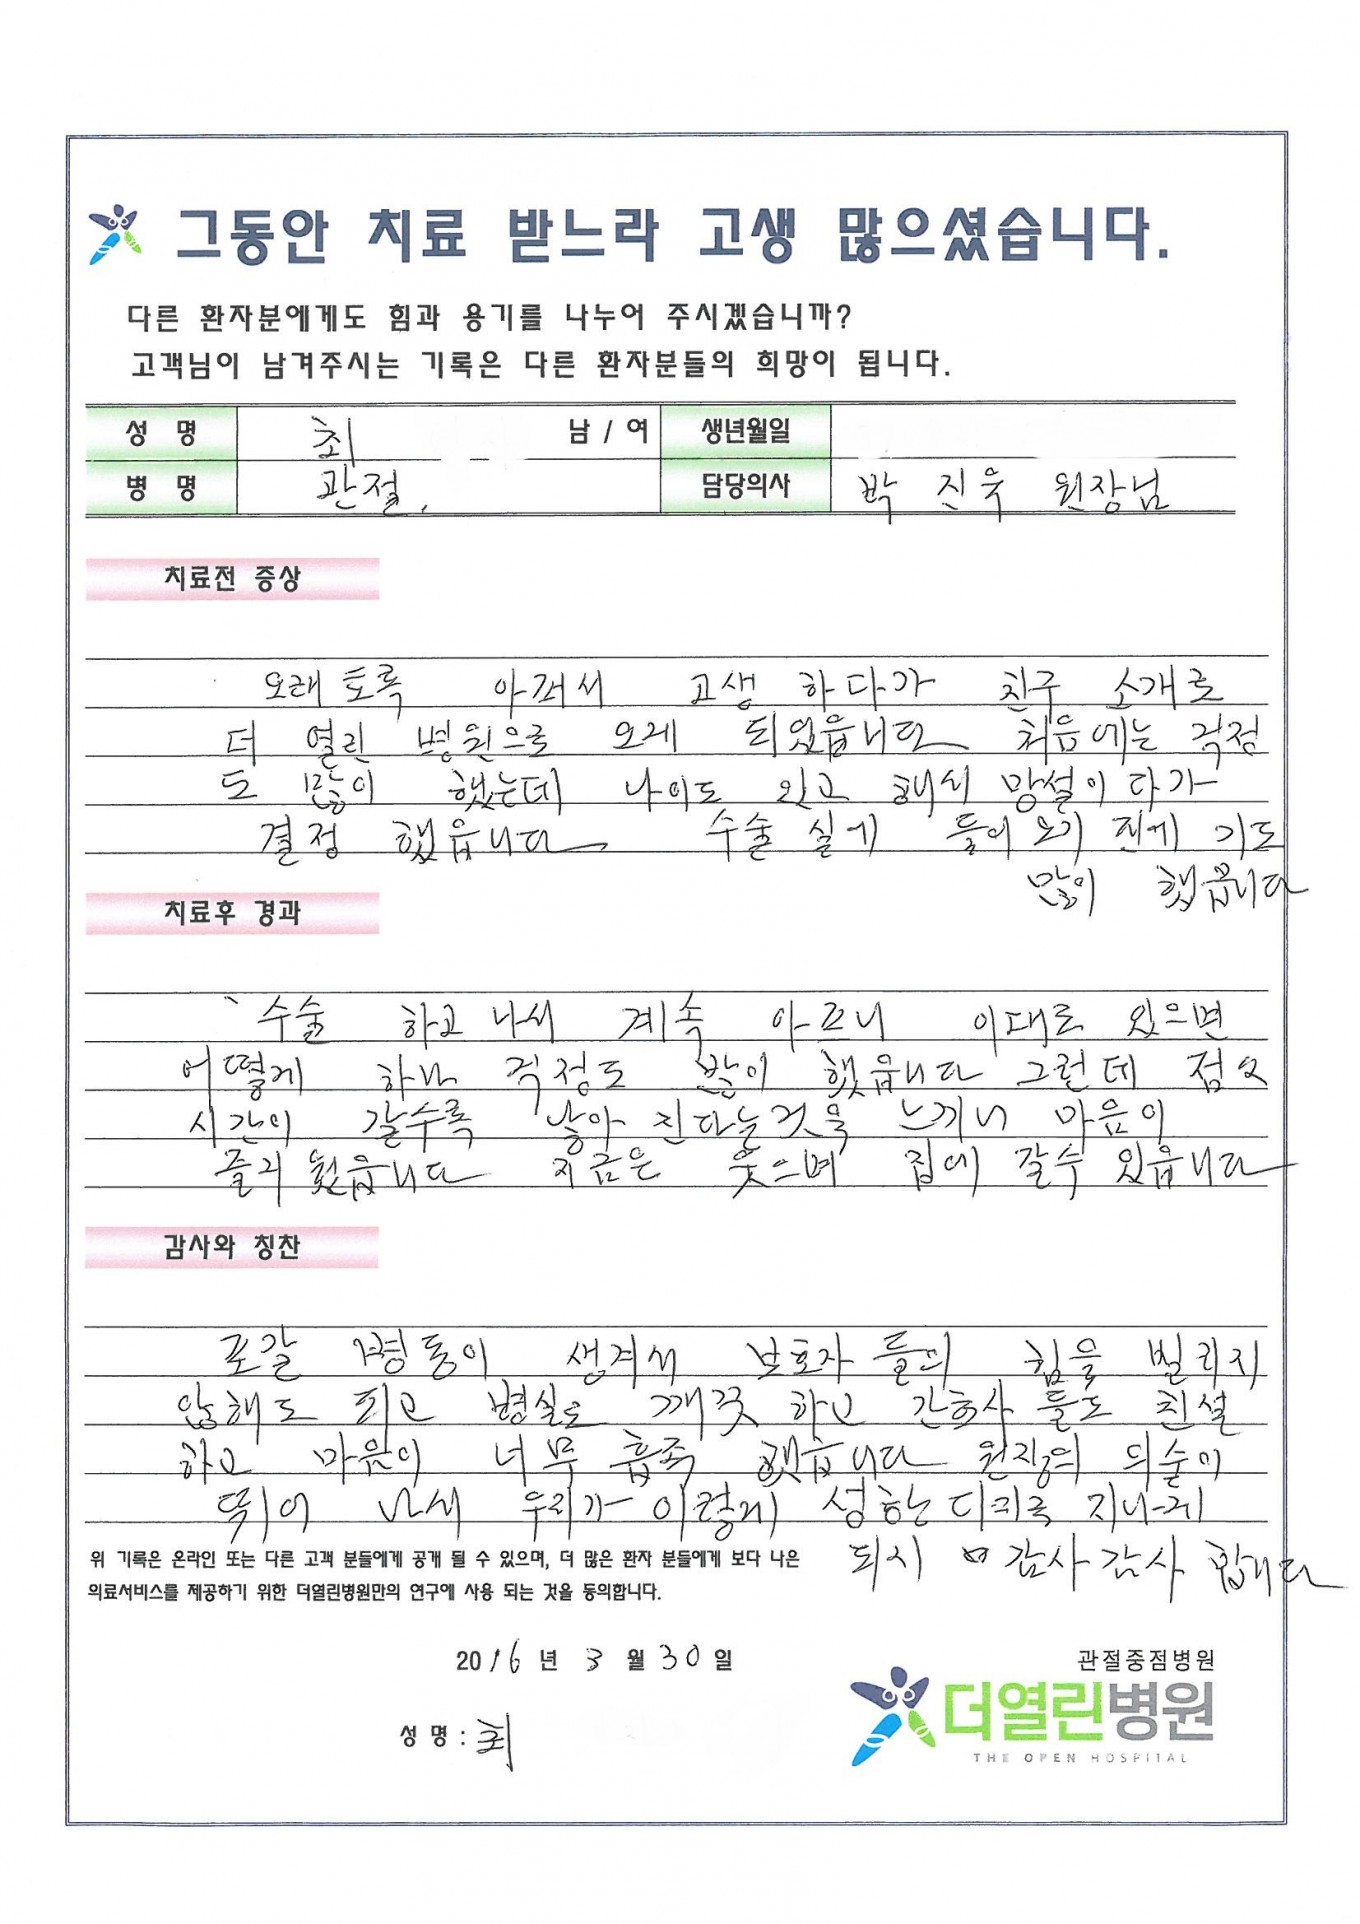 그동안 치료 받느라 고생 많으셨습니다.
다른 환자분에게도 힘과 용기를 나누어 주시겠습니까?
고객님이 남겨주시는 기록은 다른 환자분들의 희망이 됩니다.
성 명 최 남 / 여 생년월일
병 명 관절. 담당의사 박 진욱 원장님
치료전 증상
오래토록 아퍼서 고생 하다가 친구 소개로
더 열린 병원으로 오게 되었읍니다 처음에는 걱정
도 많이 했는데 나이도 있고 해서 망설이다가
결정 했읍니다. 수술 실에 들어오기 전에 기도
많이 했읍니다
치료후 경과
수술 하고 나서 계속 아프니 이대로 있으면
어떻게 하나 걱정도 많이 했읍니다 그런데 점요
시간이 갈수록 낳아 진다는것을 느끼니 마음이
즐거웠읍니다 지금은 웃으며 집에 갈수 있읍니다
감사와 칭찬
포갈 병동이 생겨서 보호자 들의 힘을 빌리지
않해도 되고 병실도 깨끗 하고 간호사 들도 친절
하고 마음이 너무 흡족 했읍니다 원장의 의술이
뛰어 나서 우리가 이렇게 성한 다리로 지나게
되시 감사감사 합니다
위 기록은 온라인 또는 다른 고객 분들에게 공개 될 수 있으며, 더 많은 환자 분들에게 보다 나은
의료서비스를 제공하기 위한 더열린병원만의 연구에 사용 되는 것을 동의합니다.
2016 년 3 월 30 일
성 명 : 최
관절중점병원
더열린병원
THE OPEN HOSPITAL